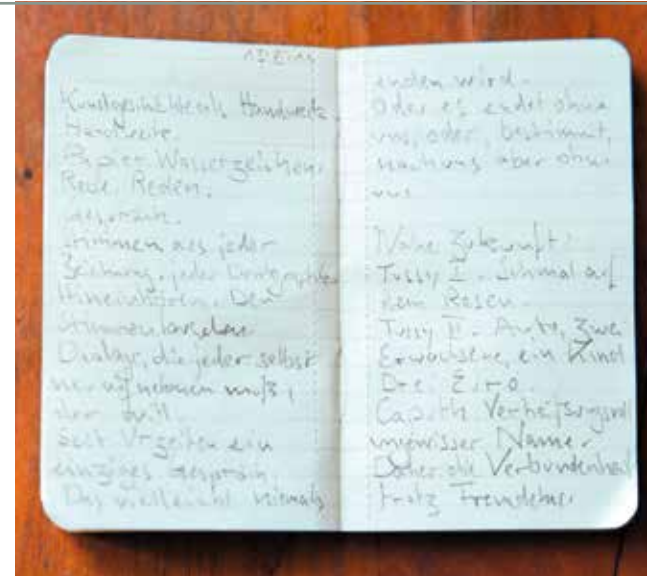 Kunstgeschichte als Handwerk.
Handwerk.
Papier. Wasserzeichen.
Rede. Reden.
Gespräch.
Stimmen aus jeder
Zeichnung, jeder
Hineinhören. Den
Stimmen
Dialoge, die jeder selbst
neu aufnehmen muß,
der will.
Seit Urzeiten ein
einziges Gespräch.
Das vielleicht niemals
enden wird.
Oder es endet ohne
uns, oder, bestimmt,
nach uns aber ohne
uns.
Nahe Zukunft:
Tussy I. Schmal auf
dem Rasen.
Tussy II. Auto, zwei
Erwachsene, ein Kind
Drei Euro.
Caputh
ungewisser Name.
Daher die Verbundenheit
trotz